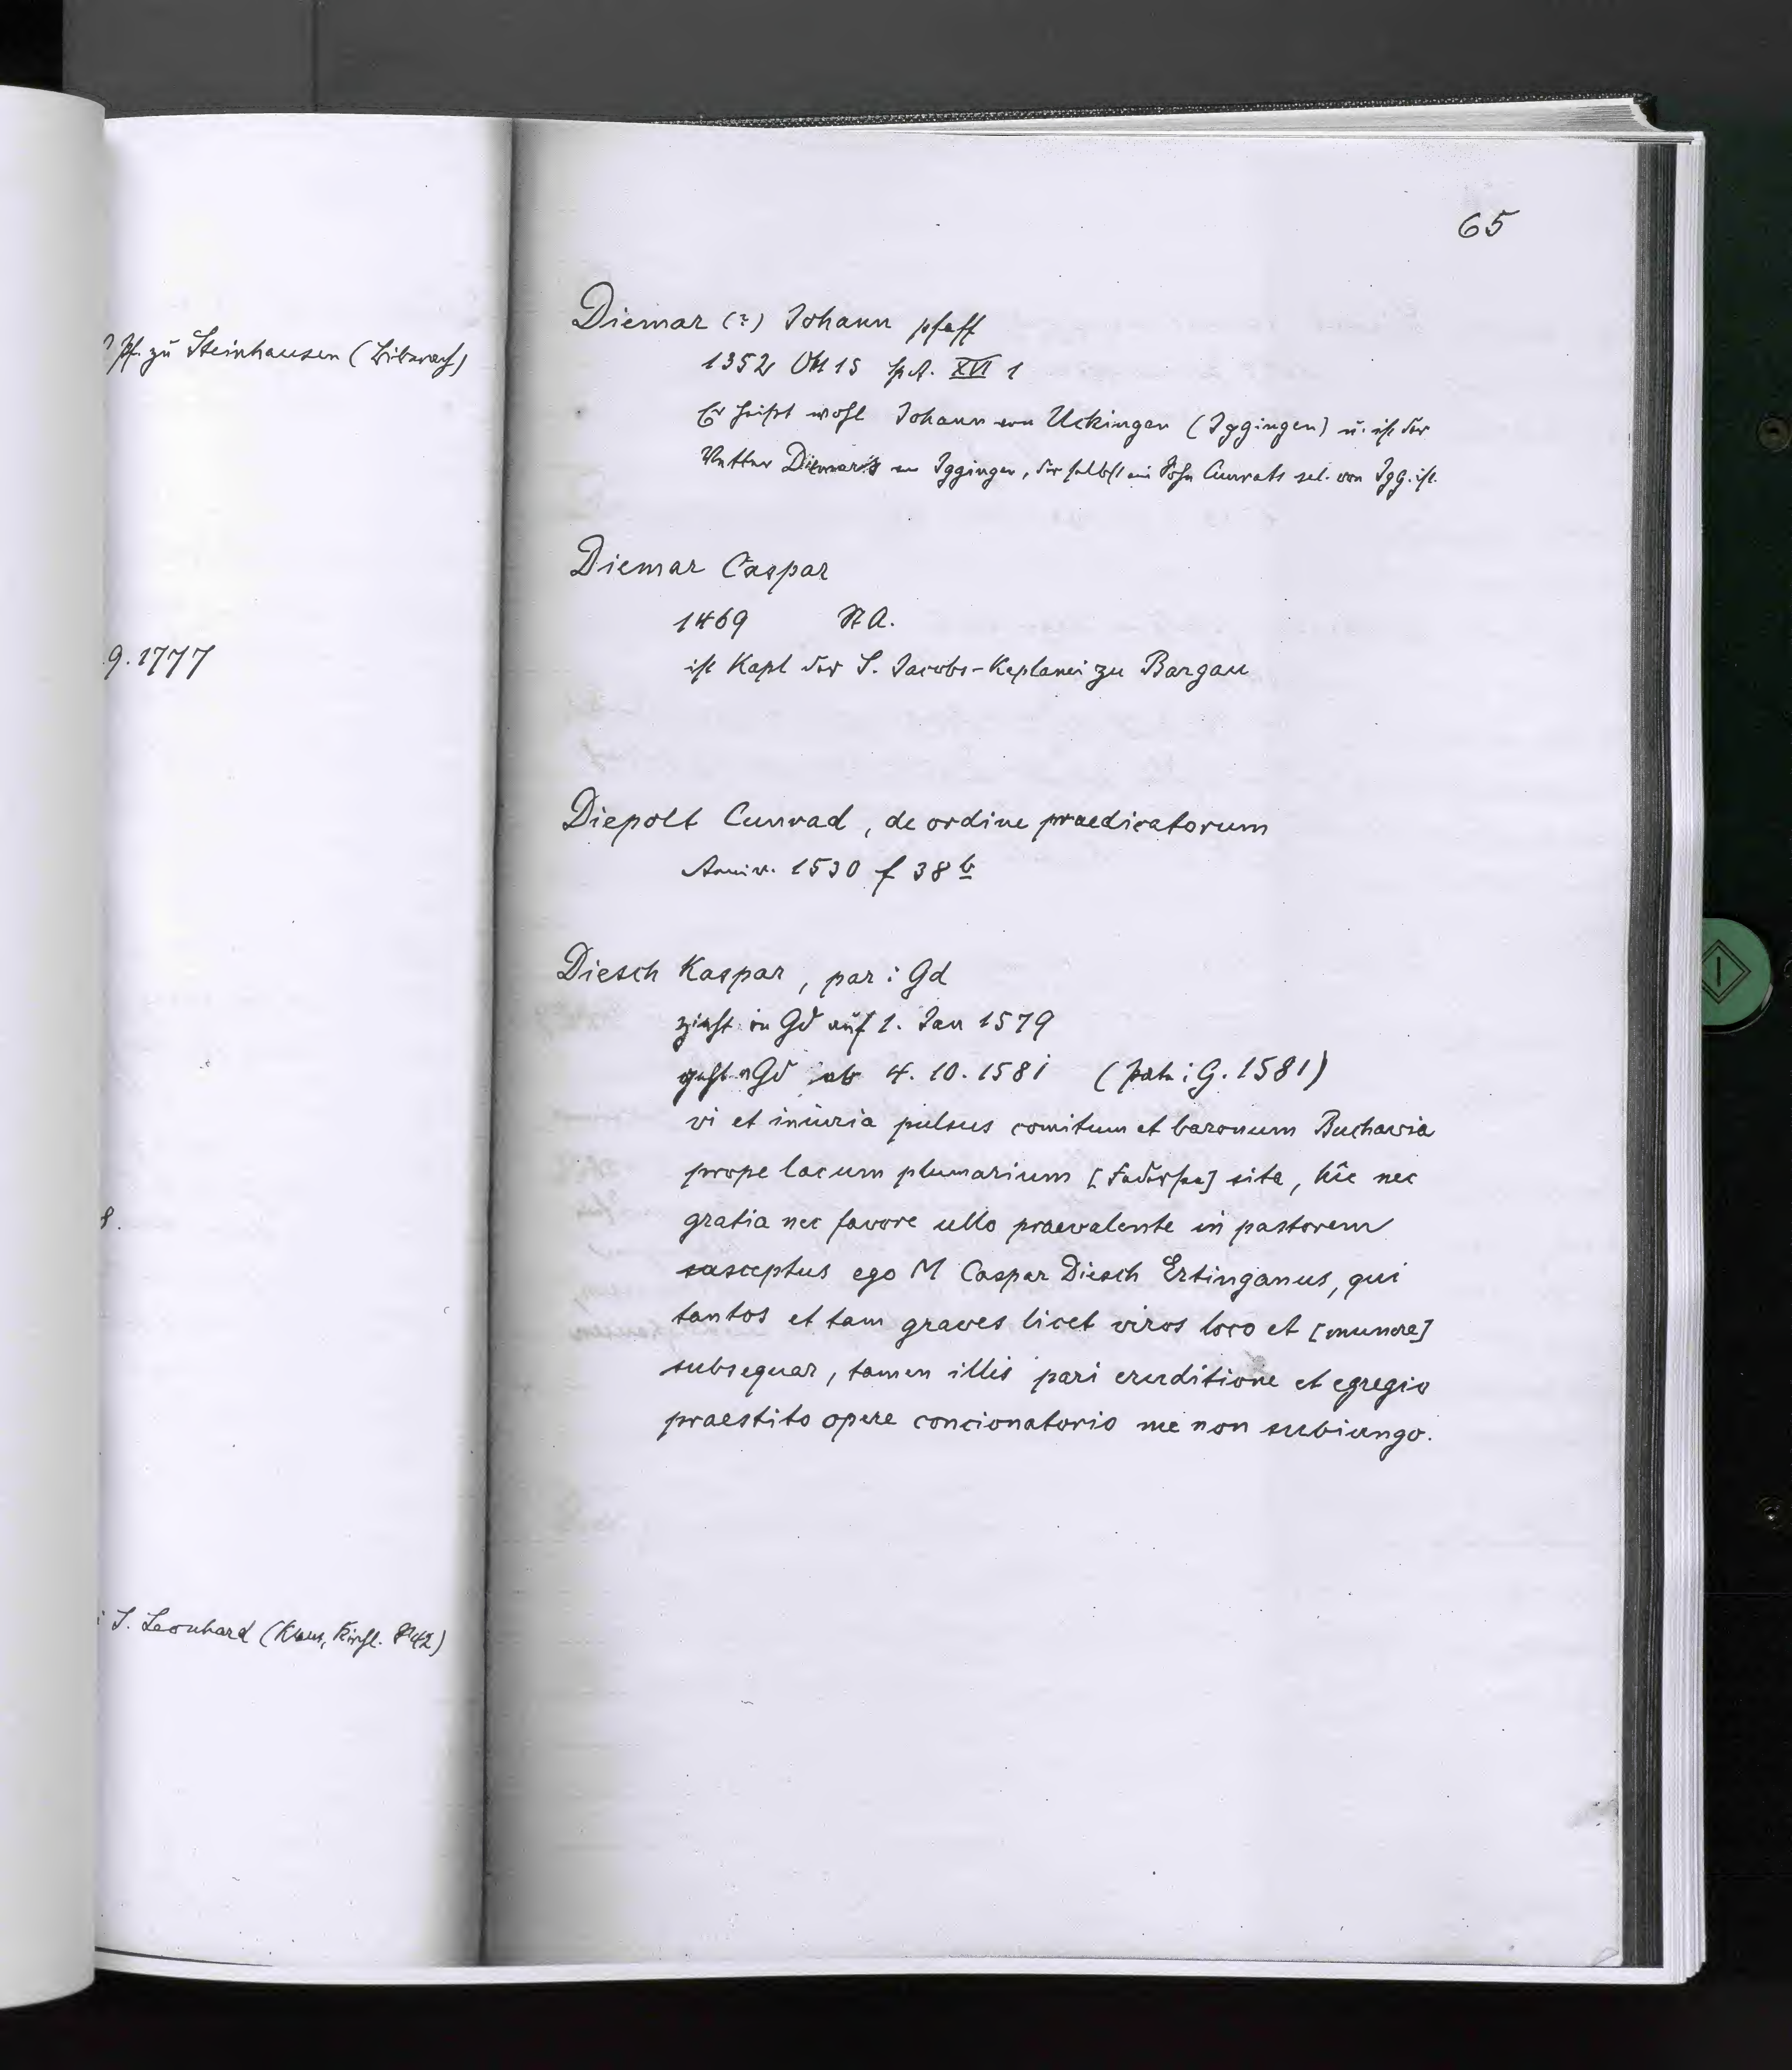 65
Pf. zu Steinhausen (Biberach)
9. 1777
8.
S. Leonhard (Klaus, Kirchl. 42)
Diemar (?) Johann pfaff
1352 Okt 15 SpA. XVI 1
Er heißt wohl Johann von Uckingen (Iggingen) u. ist der
Vetter Diemar's von Iggingen, der selbst ein Sohn Cunrats sel. von Igg. ist.
Diemar Caspar
1469 StA.
ist Kapl der S. Jacobs-Keplanei zu Bargau
Diepolt Cunrad, de ordine praedicatorum
Anniv. 1530 f 38 b
Diesch Kaspar, par i Gd
zieht in Gd auf 1. Jan 1579
geht v Gd ab 4. 10. 1581 (par i G. 1581)
vi et iniuria pulsus comitum et baronum Buchavia
prope lacum plumarium [Federsee] sita, hîc nec
gratia nec favore ullo praevalente in pastorem
susceptus ego M Caspar Diesch Ertinganus, qui
tantos et tam graves licet viros loco et [munere]
subsequar, tamen illis pari eruditione et egregio
praestito opere concionatorio me non subiungo.